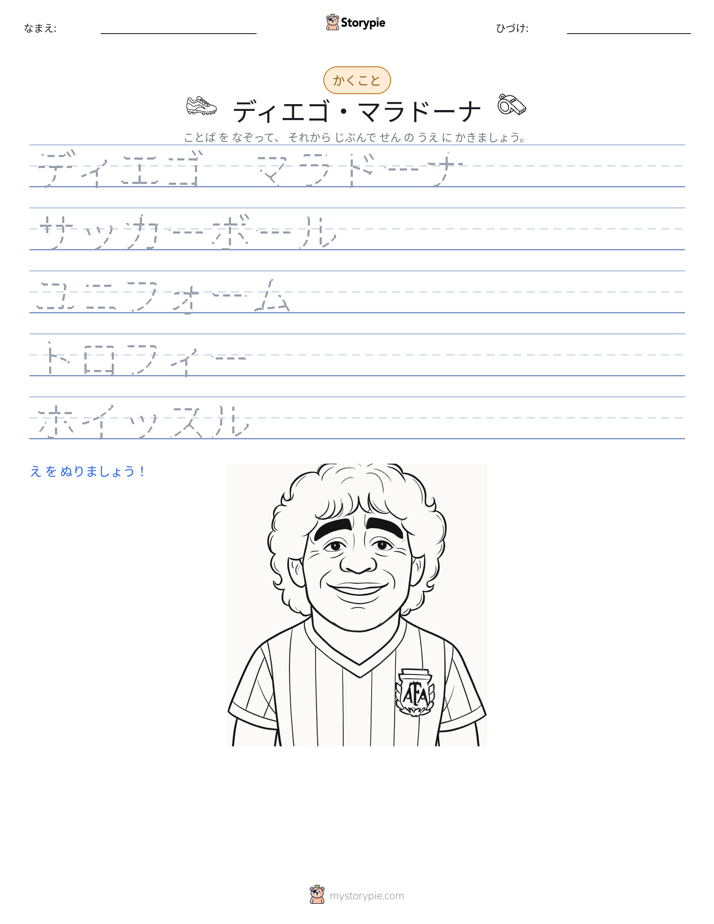 なまえ:
Storypie
ひづけ:
かくこと
ディエゴ・マラドーナ
ことば を なぞって、 それから じぶんで せん の うえ に かきましょう。
ディエゴ マラドーナ
サッカーボール
ユニフォーム
トロフィー
ホイッスル
え を ぬりましょう！
AFA
mystorypie.com